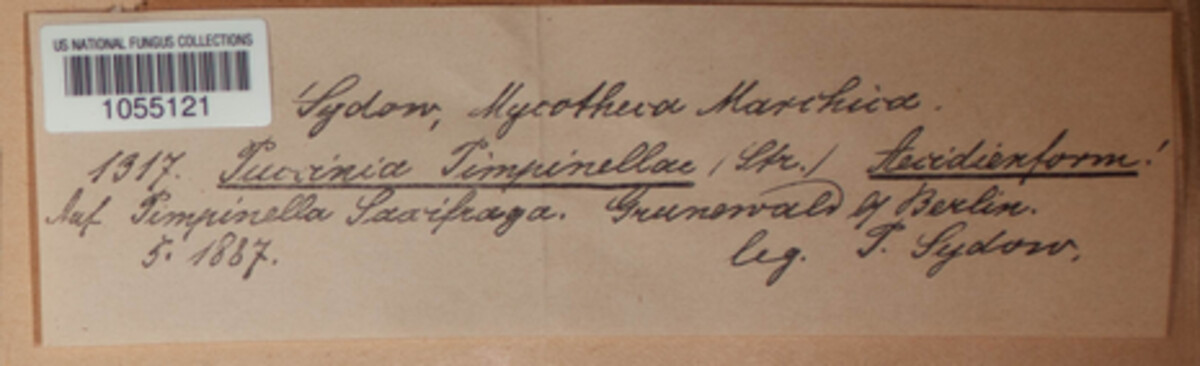 US NATIONAL FUNGUS COLLECTIONS
1055121
Sydow, Mycotheca Marchica.
1317. Puccinia Pimpinellae (Str.) Aecidienform!
Auf Pimpinella Saxifraga. Grunewald b/ Berlin.
5. 1887. leg. P. Sydow.